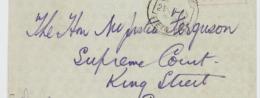 The Hon Mr Justice Ferguson
Supreme Court.
King Street